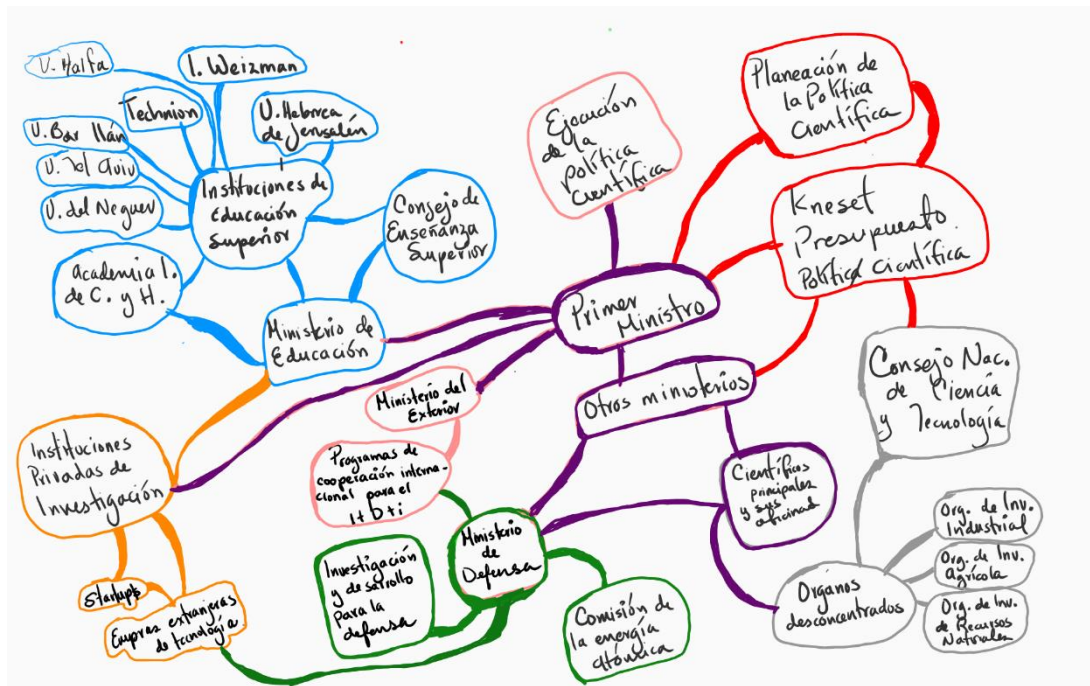 U. Haifa
I. Weizman
Technion
U. Hebrea
de Jerusalén
U. Bar Ilán
U. Tel Aviv
U. del Neguev
Instituciones de
Educación
Superior
Consejo de
Enseñanza
Superior
Academia I.
de C. y H.
Ministerio de
Educación
Ejecución
de la
política
Científica
Planeación de
la Política
Científica
Kneset
Presupuesto
Política Científica
Primer
Ministro
Otros ministerios
Consejo Nac.
de Ciencia
y Tecnología
Ministerio del
Exterior
Programas de
cooperación interna-
cional para el
I+D+i
Instituciones
Privadas de
Investigación
Científicos
principales
y sus
oficinas
Ministerio
de
Defensa
Investigación
y desarrollo
para la
defensa
Comisión de
la energía
Atómica
Startups
Empras extranjeras
de tecnología
Organos
desconcentrados
Org. de Inv.
Industrial
Org. de Inv.
Agrícola
Org. de Inv.
de Recursos
Naturales